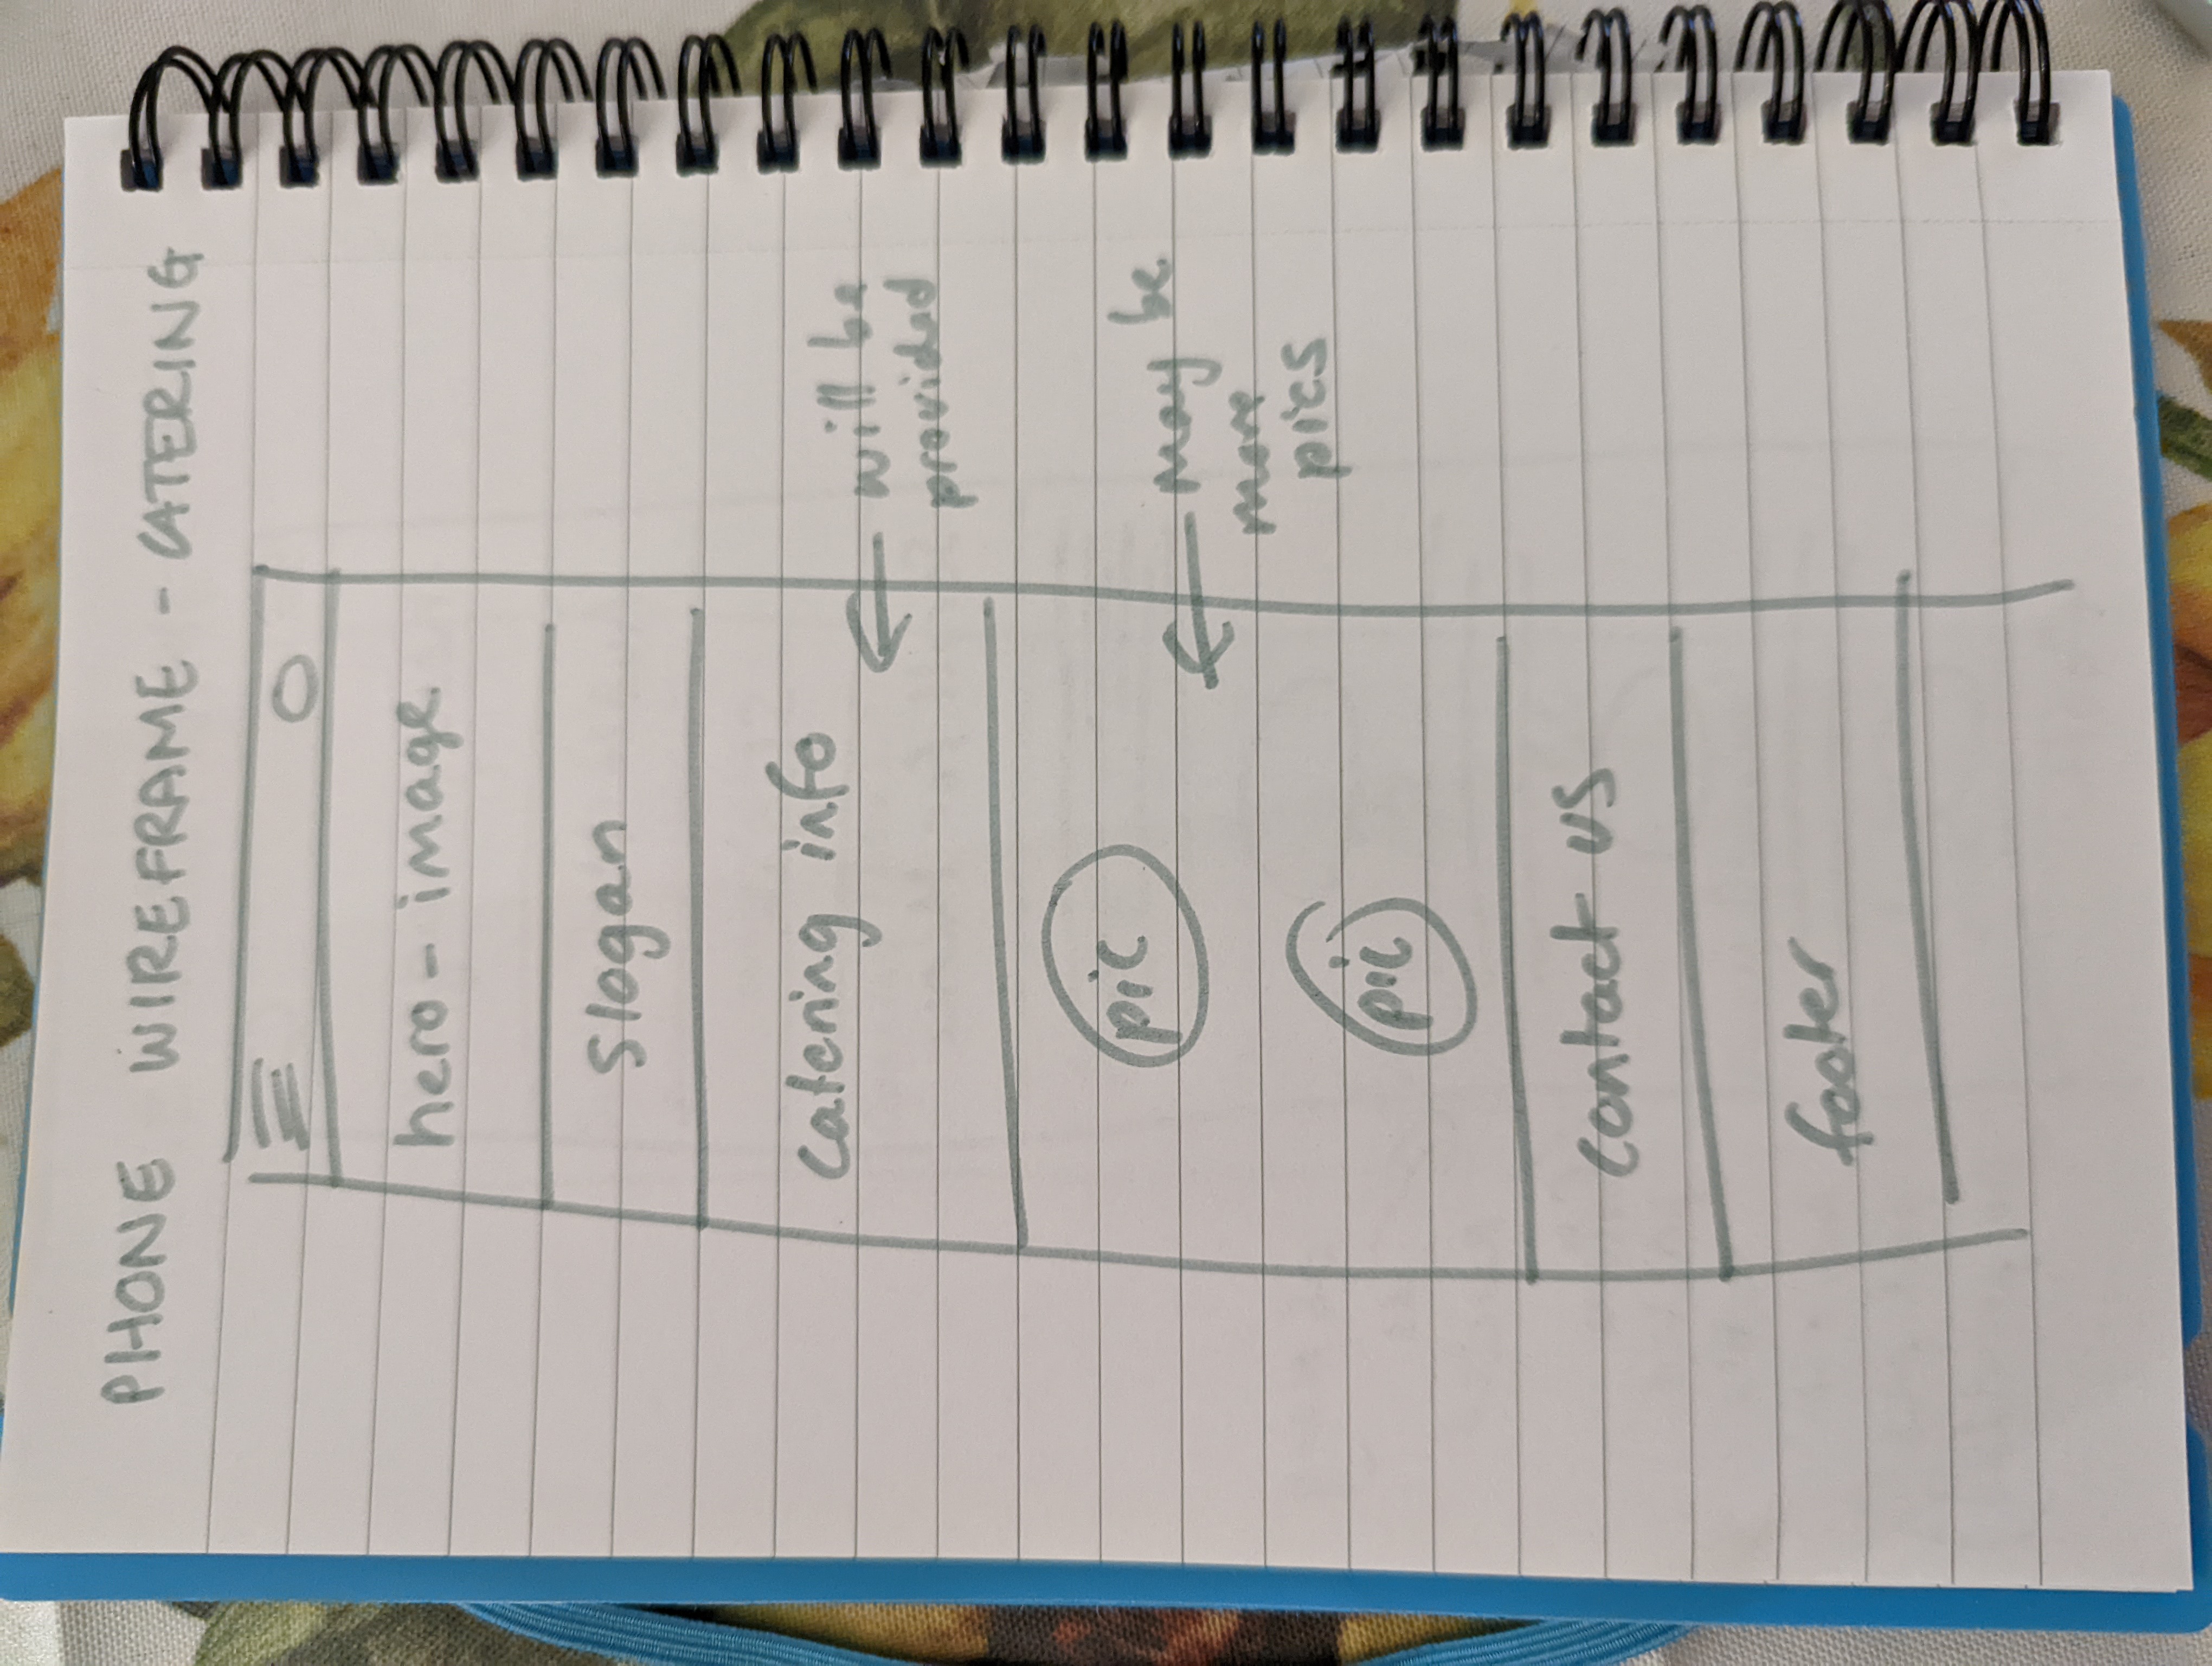 PHONE WIREFRAME - CATERING
hero-image
slogan
catering info
← will be
provided
pic
← may be
more
pics
pic
contact us
footer